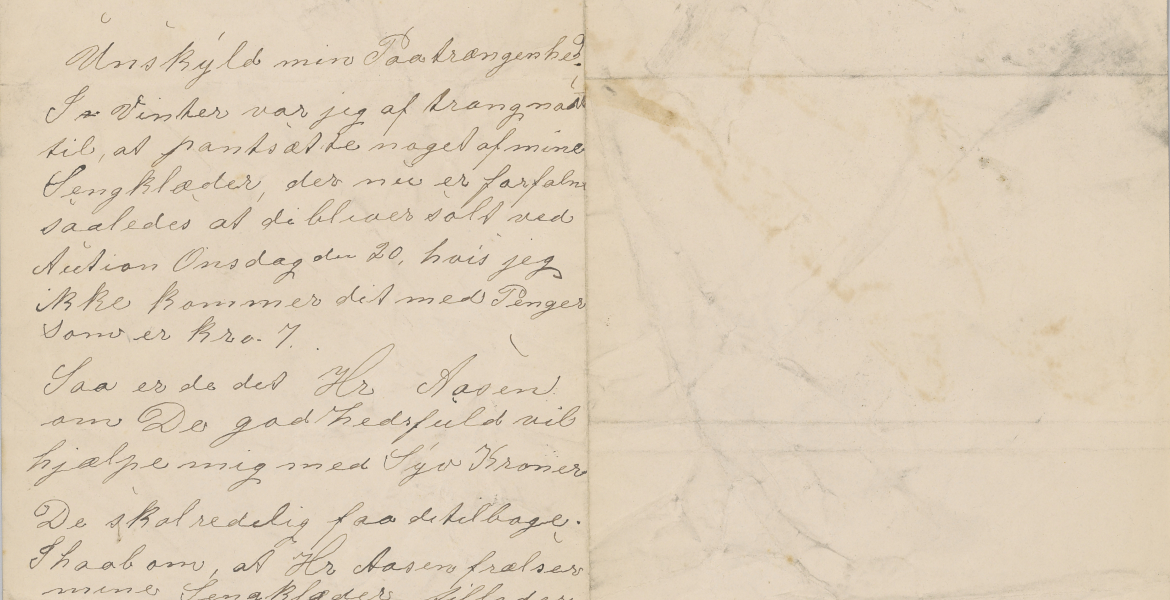 Unskyld min Paatrængenhed.
In Vinter var jeg af trang nød
til, at pantsætte noget af mine
Sengklæder, der nu er forfaln
saaledes at di bliver solt ved
Aution Onsdag den 20, hvis jeg
ikke kommer dit med Penger
som er kro. 7.
Saa er de det Hr Aasen
om De godhedsfuld vil
hjælpe mig med Syv Kroner
De skal redelig faa de tilbage.
I haab om, at Hr Aasen frælser
mine Sengklæder tillader